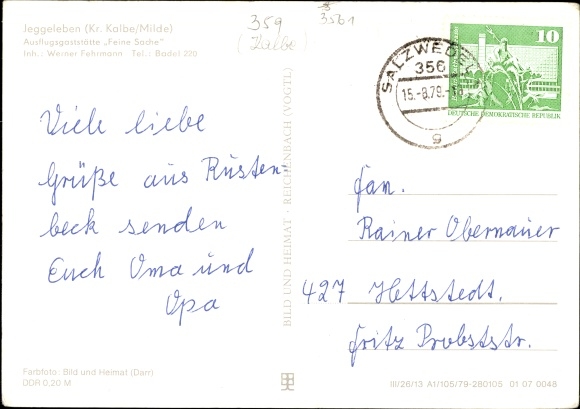 Jeggeleben (Kr. Kalbe/Milde)
Ausflugsgaststätte „Feine Sache"
Inh.: Werner Fehrmann Tel.: Badel 220
359
(Kalbe)
3561
SALZWEDEL
356
15.-8.79.-18
g
10
DEUTSCHE DEMOKRATISCHE REPUBLIK
Viele liebe
Grüße aus Rüsten-
beck senden
Euch Oma und
Opa
BILD UND HEIMAT · REICHENBACH (VOGTL)
Fam.
Rainer Obernauer
427 Hettstedt.
Fritz Probststr.
Farbfoto: Bild und Heimat (Darr)
DDR 0,20 M
III/26/13 A1/105/79-280105 01 07 0048